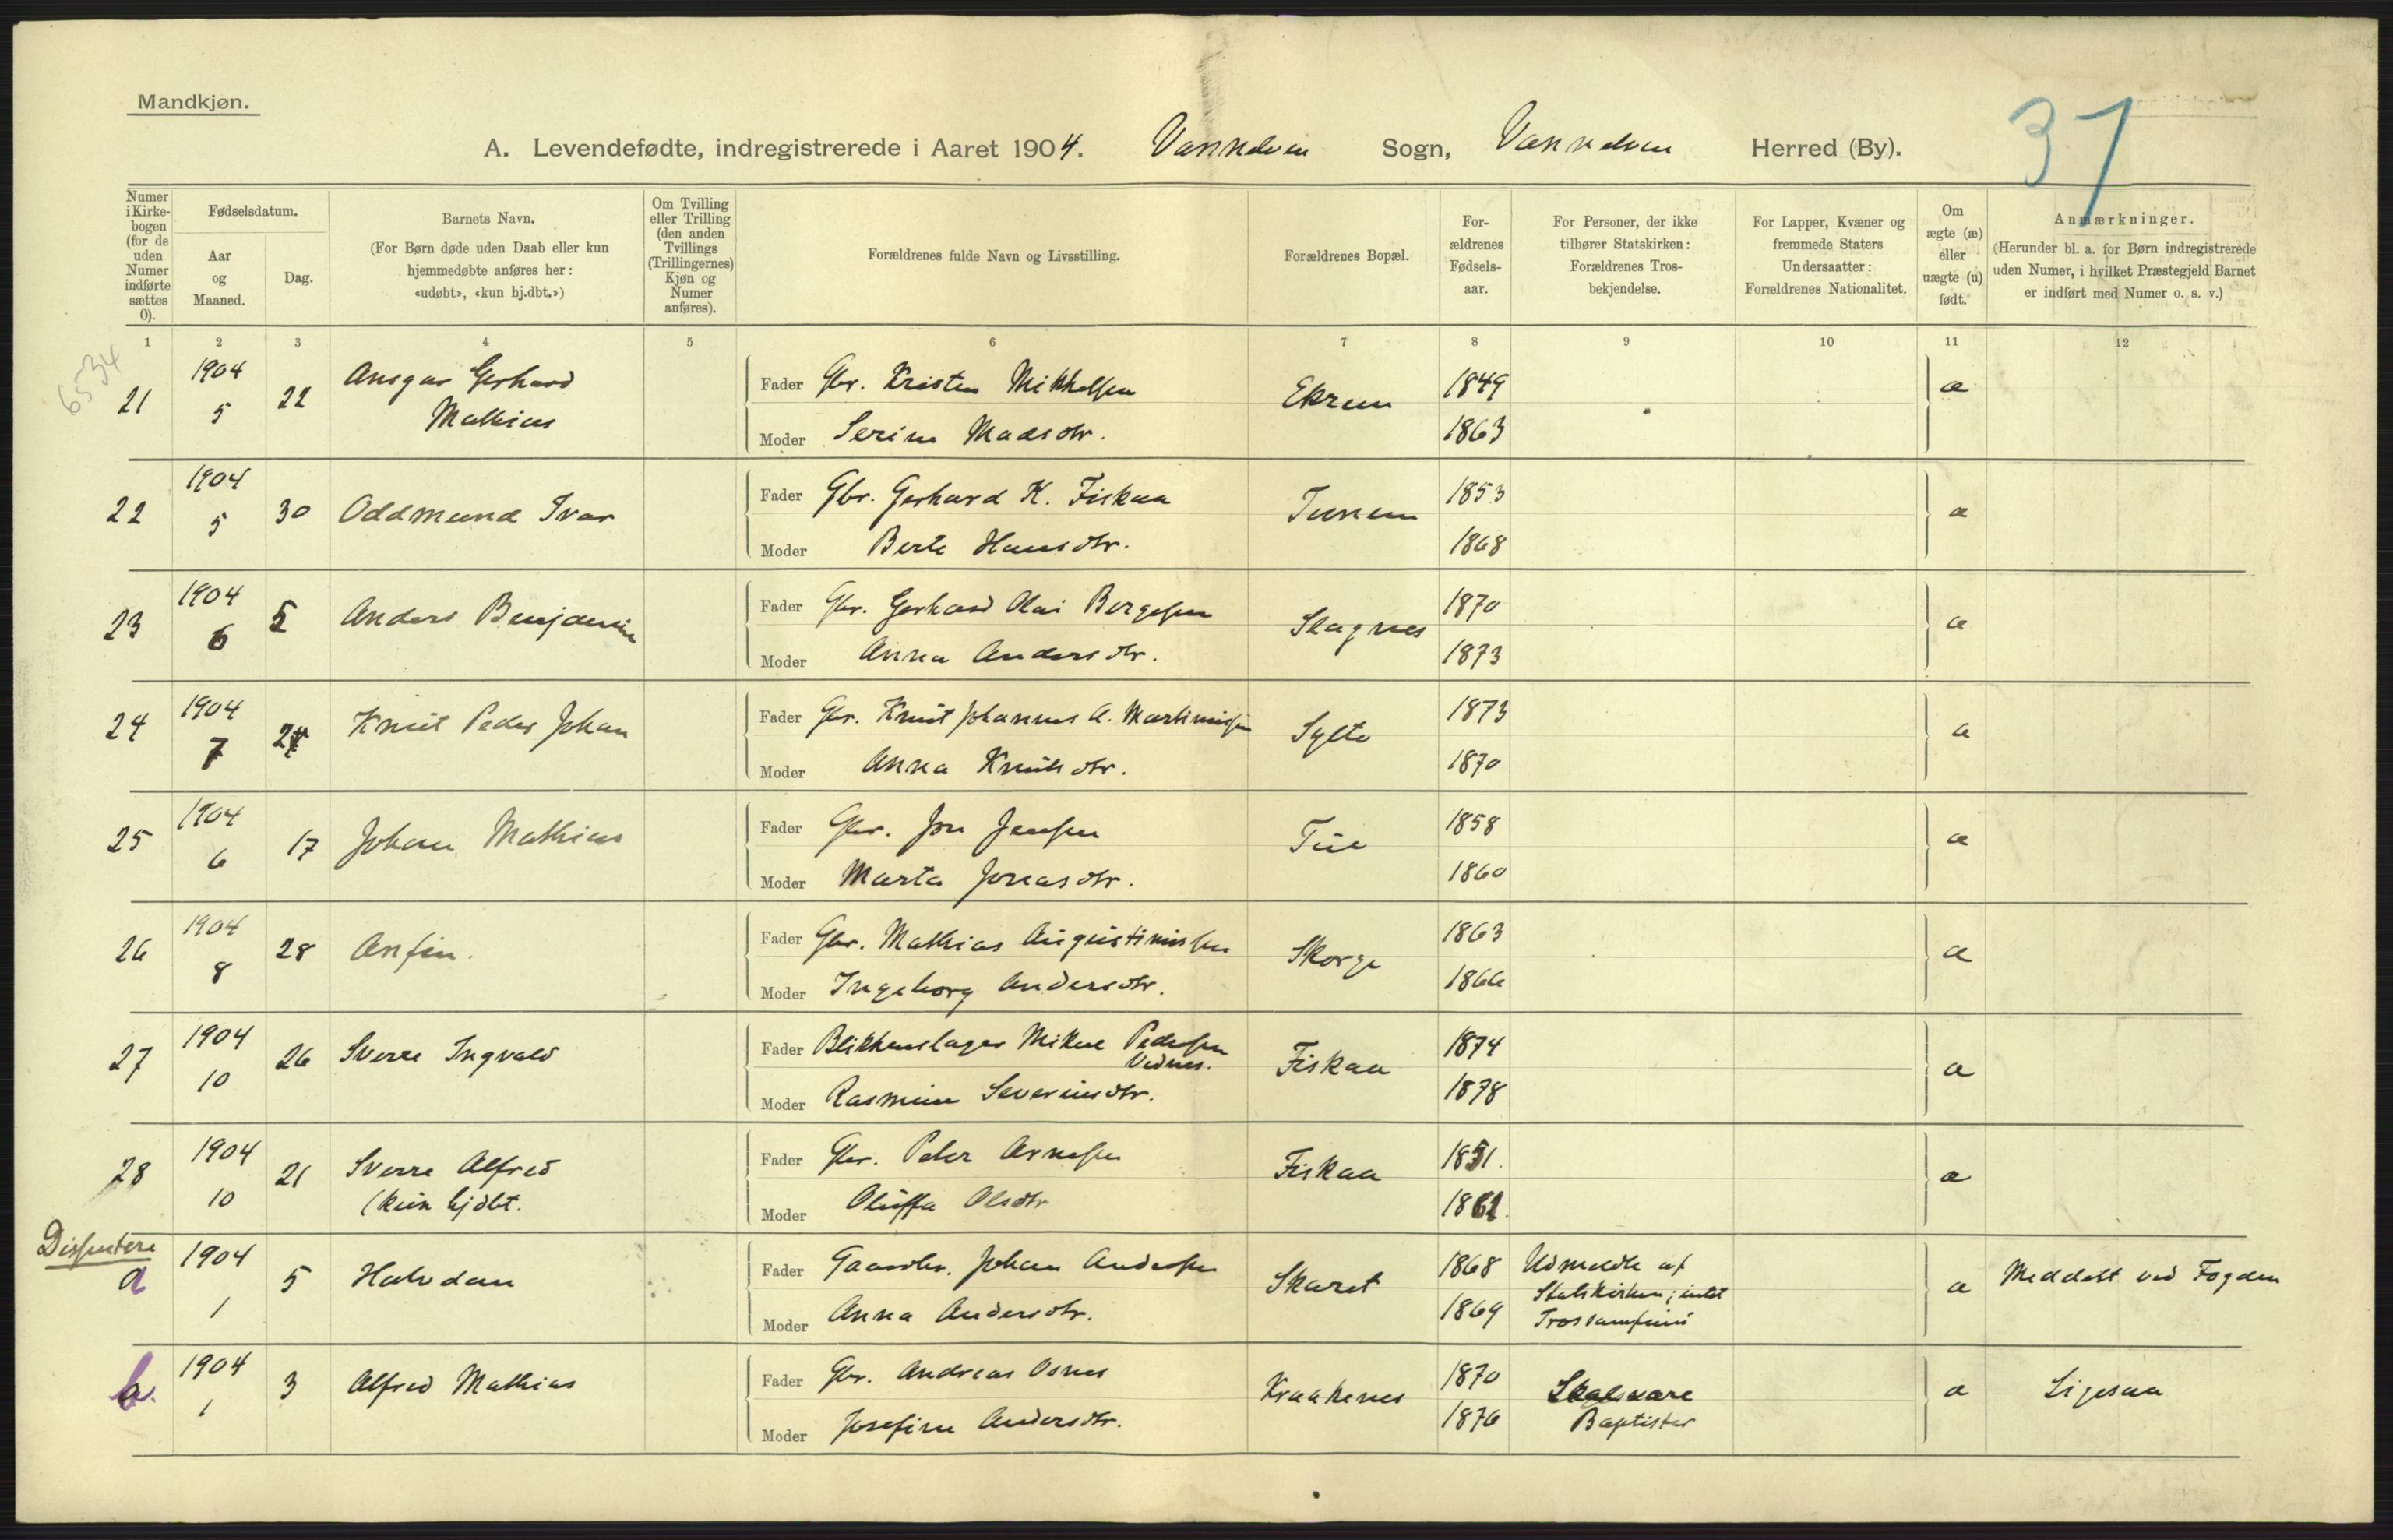 Mandkjøn.
37
A. Levendefødte, indregistrerede i Aaret 1904. Vannelven Sogn, Vannelven Herred (By).
Numer i Kirke-bogen (for de uden Numer indførte sættes 0).
Fødselsdatum.
Aar og Maaned.
Dag.
Barnets Navn.
(For Børn døde uden Daab eller kun hjemmedøbte anføres her: «udøbt», «kun hj.dbt.»)
Om Tvilling eller Trilling (den anden Tvillings (Trillingernes) Kjøn og Numer anføres).
Forældrenes fulde Navn og Livsstilling.
Forældrenes Bopæl.
For-ældrenes Fødsels-aar.
For Personer, der ikke tilhører Statskirken: Forældrenes Tros-bekjendelse.
For Lapper, Kvæner og fremmede Staters Undersaatter: Forældrenes Nationalitet.
Om ægte (æ) eller uægte (u) født.
Anmærkninger.
(Herunder bl. a. for Børn indregistrerede uden Numer, i hvilket Præstegjeld Barnet er indført med Numer o. s. v.)
1 2 3 4 5 6 7 8 9 10 11 12
6534
21 1904 5 22 Ansgar Gerhard Mathias
Fader Gbr. Kristen Mikkelsen Ekrem 1849 æ
Moder Serine Madsdtr. 1863
22 1904 5 30 Oddmund Ivar
Fader Gbr. Gerhard K. Fiskaa Tunem 1853 æ
Moder Berte Hansdtr. 1868
23 1904 6 5 Anders Benjamin
Fader Gbr. Gerhard Olai Børgesen Slagnes 1870 æ
Moder Anna Andersdtr. 1873
24 1904 7 24 Knut Peder Johan
Fader Gbr. Knut Johannes A. Martinussen Sylte 1873 æ
Moder Anna Knutsdtr. 1870
25 1904 6 17 Johan Mathias
Fader Gbr. Jon Jensen Tue 1858 æ
Moder Marta Jonasdtr. 1860
26 1904 8 28 Anfin.
Fader Gbr. Mathias Augustinussen Skorge 1863 æ
Moder Ingeborg Andersdtr. 1866
27 1904 10 26 Sverre Ingvald
Fader Blikkenslager Mikal Pedersen Vednes. Fiskaa 1874 æ
Moder Rasmine Severinsdtr. 1878
28 1904 10 21 Sverre Alfred (kun hjdbt.
Fader Gbr. Peter Arnesen Fiskaa 1851. æ
Moder Oluffa Olsdtr 1861.
Dissentere
a 1904 1 5 Halvdan
Fader Gaardbr. Johan Andersen Skaret 1868 Udmeldte af Statskirken; intet Trossamfund æ Meddelt ved Fogden
Moder Anna Andersdtr. 1869
b. 1904 1 3 Alfred Mathias
Fader Gbr. Andreas Osnes Kraakenes 1870 Baptister æ Ligesaa
Moder Josefine Andersdtr. 1876